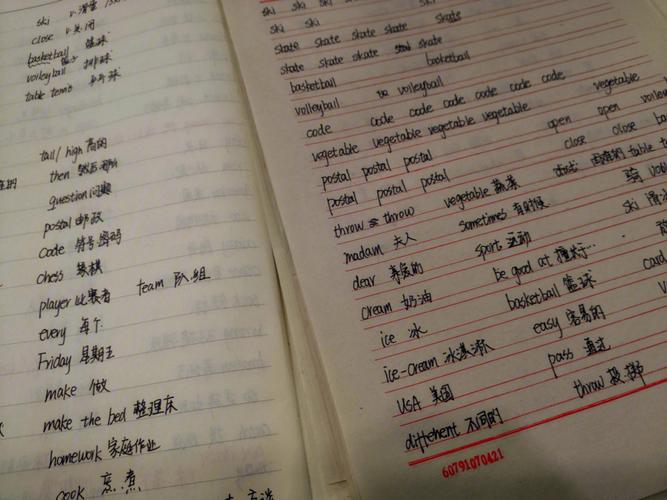 ski v.滑雪
close v.关闭
basketball 篮球
volleyball 排球
table tennis 乒乓球
tall/high 高的
then 然后
question 问题
postal 邮政
code 符号密码
chess 象棋
player 比赛者 team 队、组
every 每个
Friday 星期五
make 做
make the bed 整理床
homework 家庭作业
cook 烹.煮
ski ski ski ski ski
ski ski skate
skate skate skate skate
skate skate skate skate
basketball basketball
volleyball volleyball
code code code code code code code vegetable
vegetable vegetable vegetable vegetable open open
postal postal postal close close
postal postal postal
throw throw vegetable 蔬菜
madam 夫人 sometimes 有时候 骑
dear 亲爱的 sport 运动 ski
cream 奶油 be good at 擅长于…
ice 冰 basketball 篮球
ice-cream 冰淇淋 easy 容易的
USA 美国 pass
different 不同的 throw 投.掷
60791070421